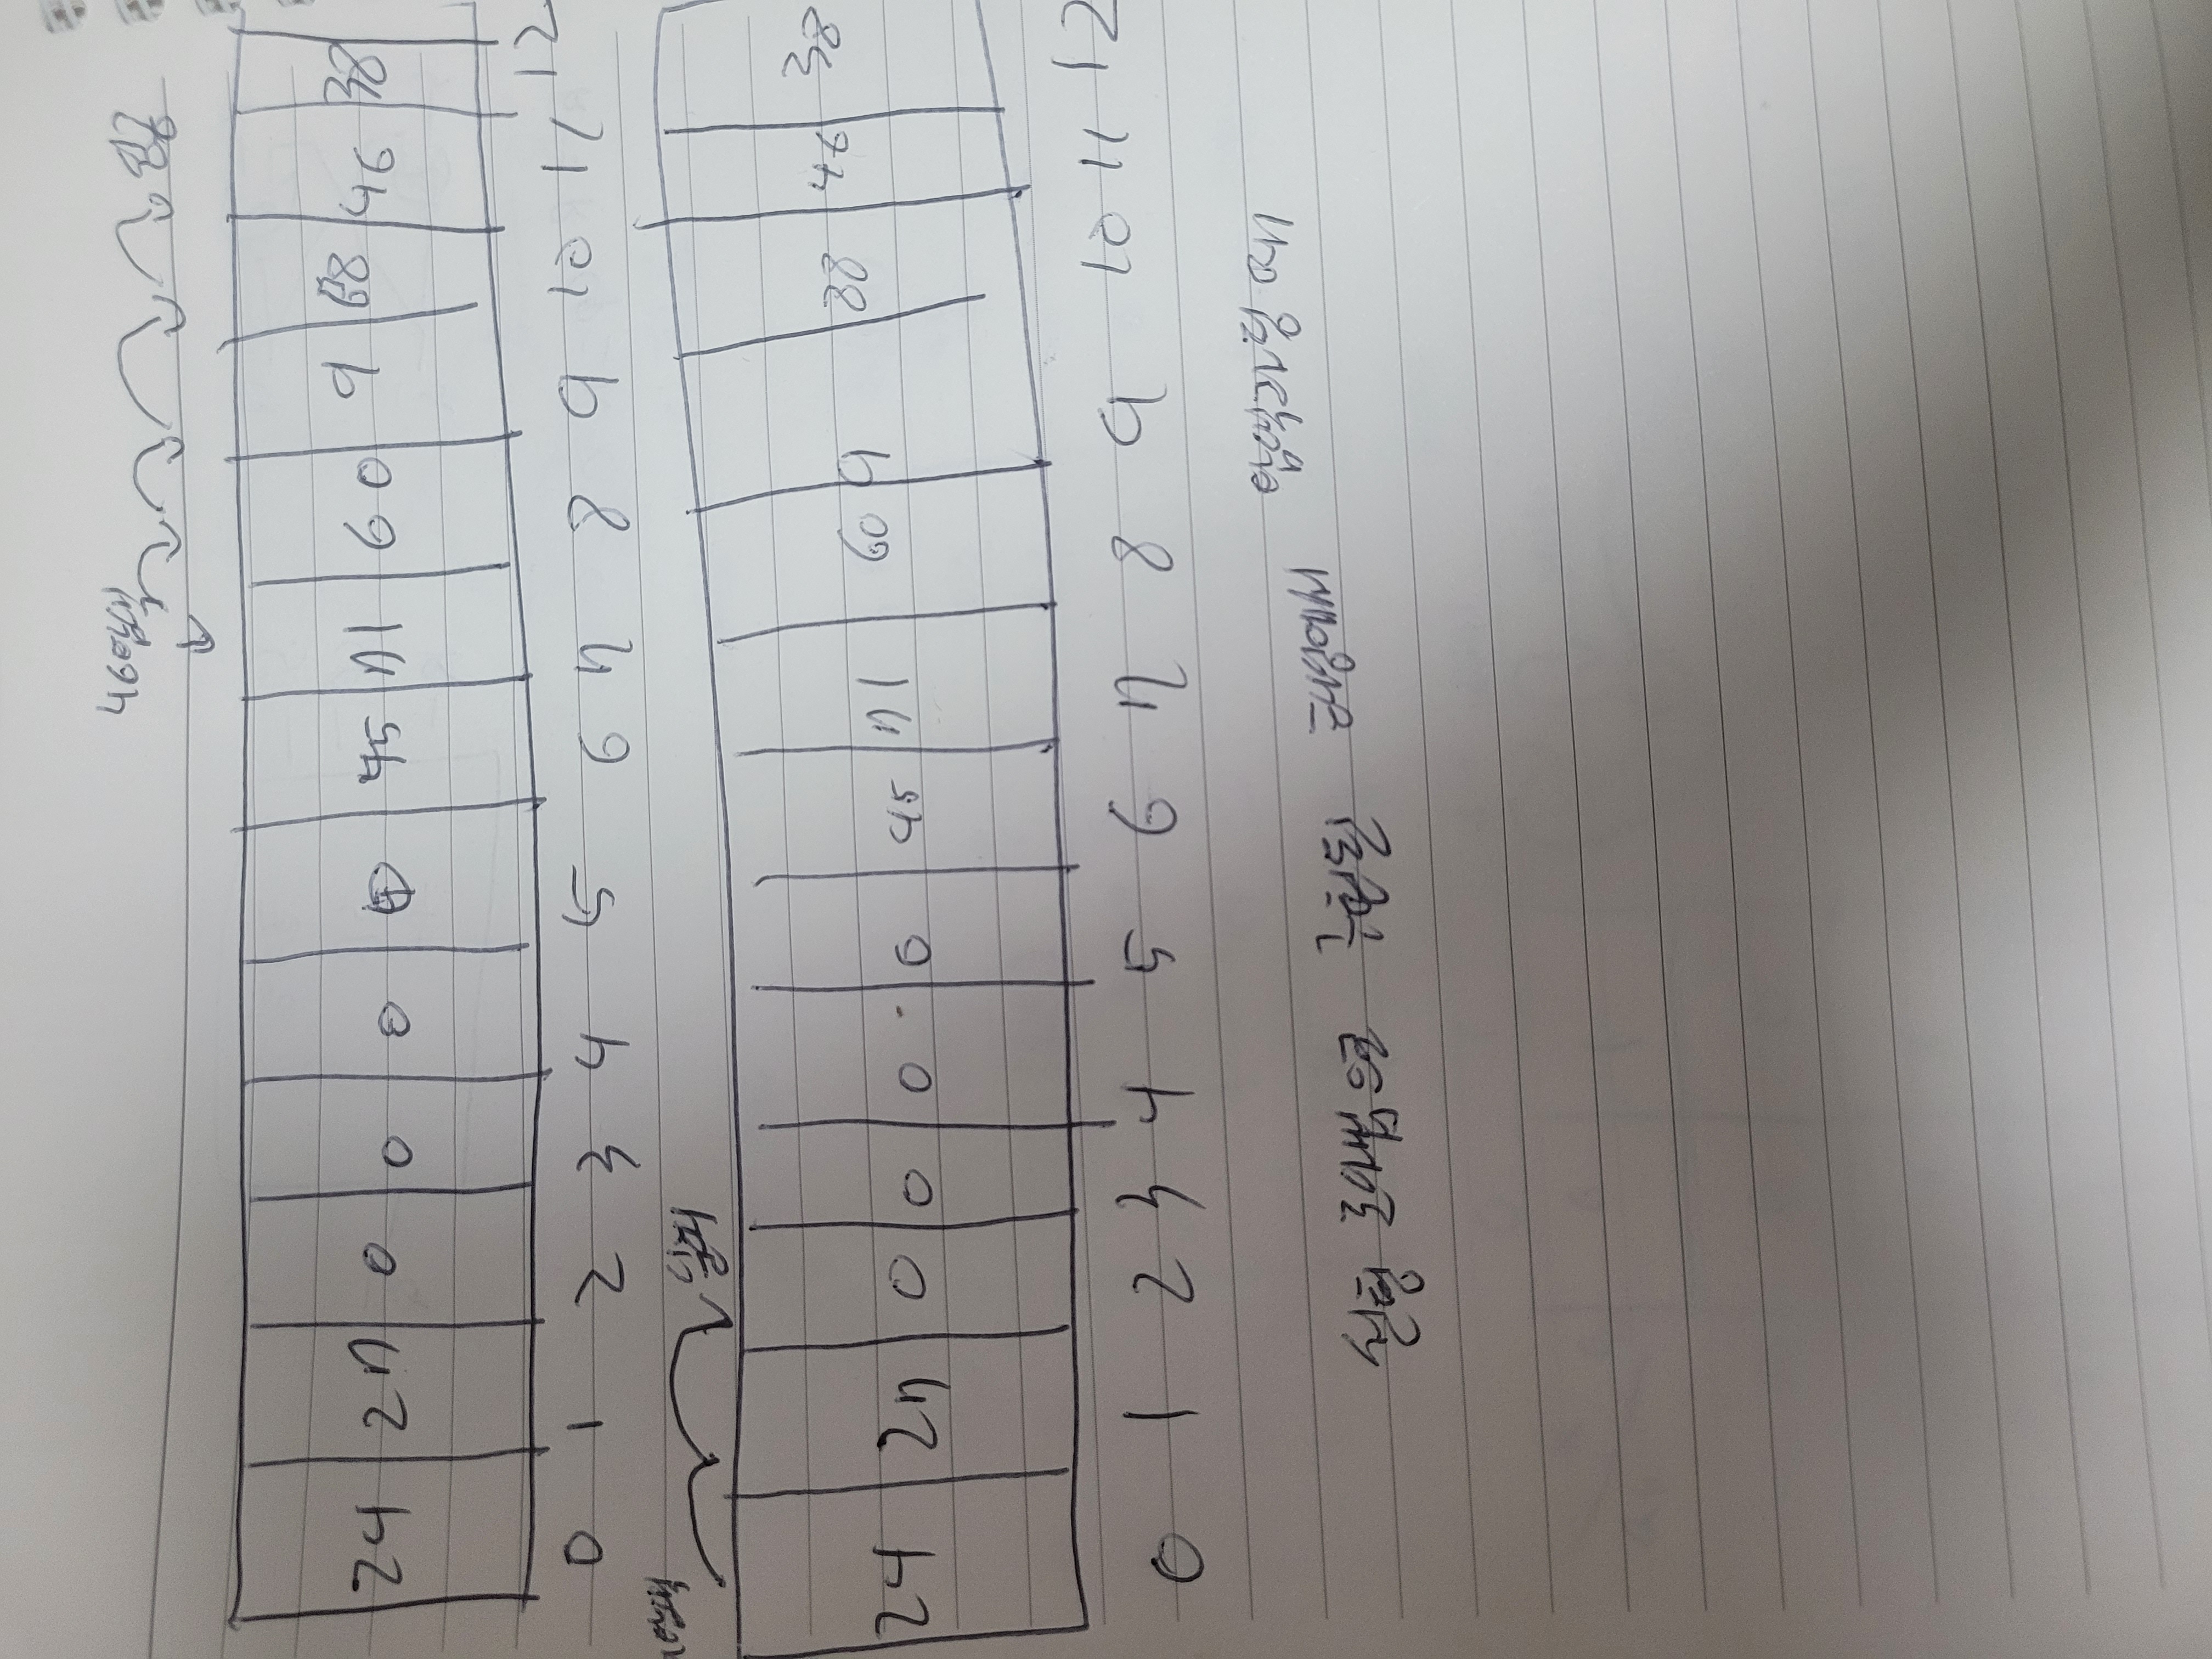 46탐색 성공
24 27 0 0 0 0 45 71 60 9 88 46 38
0 1 2 3 4 5 6 7 8 9 10 11 12
실패
24 27 0 0 0 0 45 71 60 9 88 46 38
0 1 2 3 4 5 6 7 8 9 10 11 12
선형 조사법으로 구현된